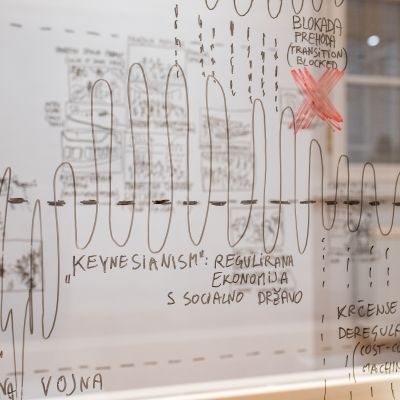 BLOKADA
PREHODA
(TRANSITION
BLOCKED)
„KEYNESIANISM": REGULIRANA
EKONOMIJA
S SOCIALNO DRŽAVO
KRČENJE
DEREGULA
(COST-C
MACHIN
VOJNA